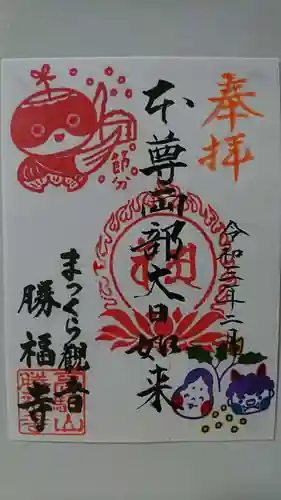 奉拝
令和三年二月
本尊
大日如来
節分
まっくら観音
勝福寺